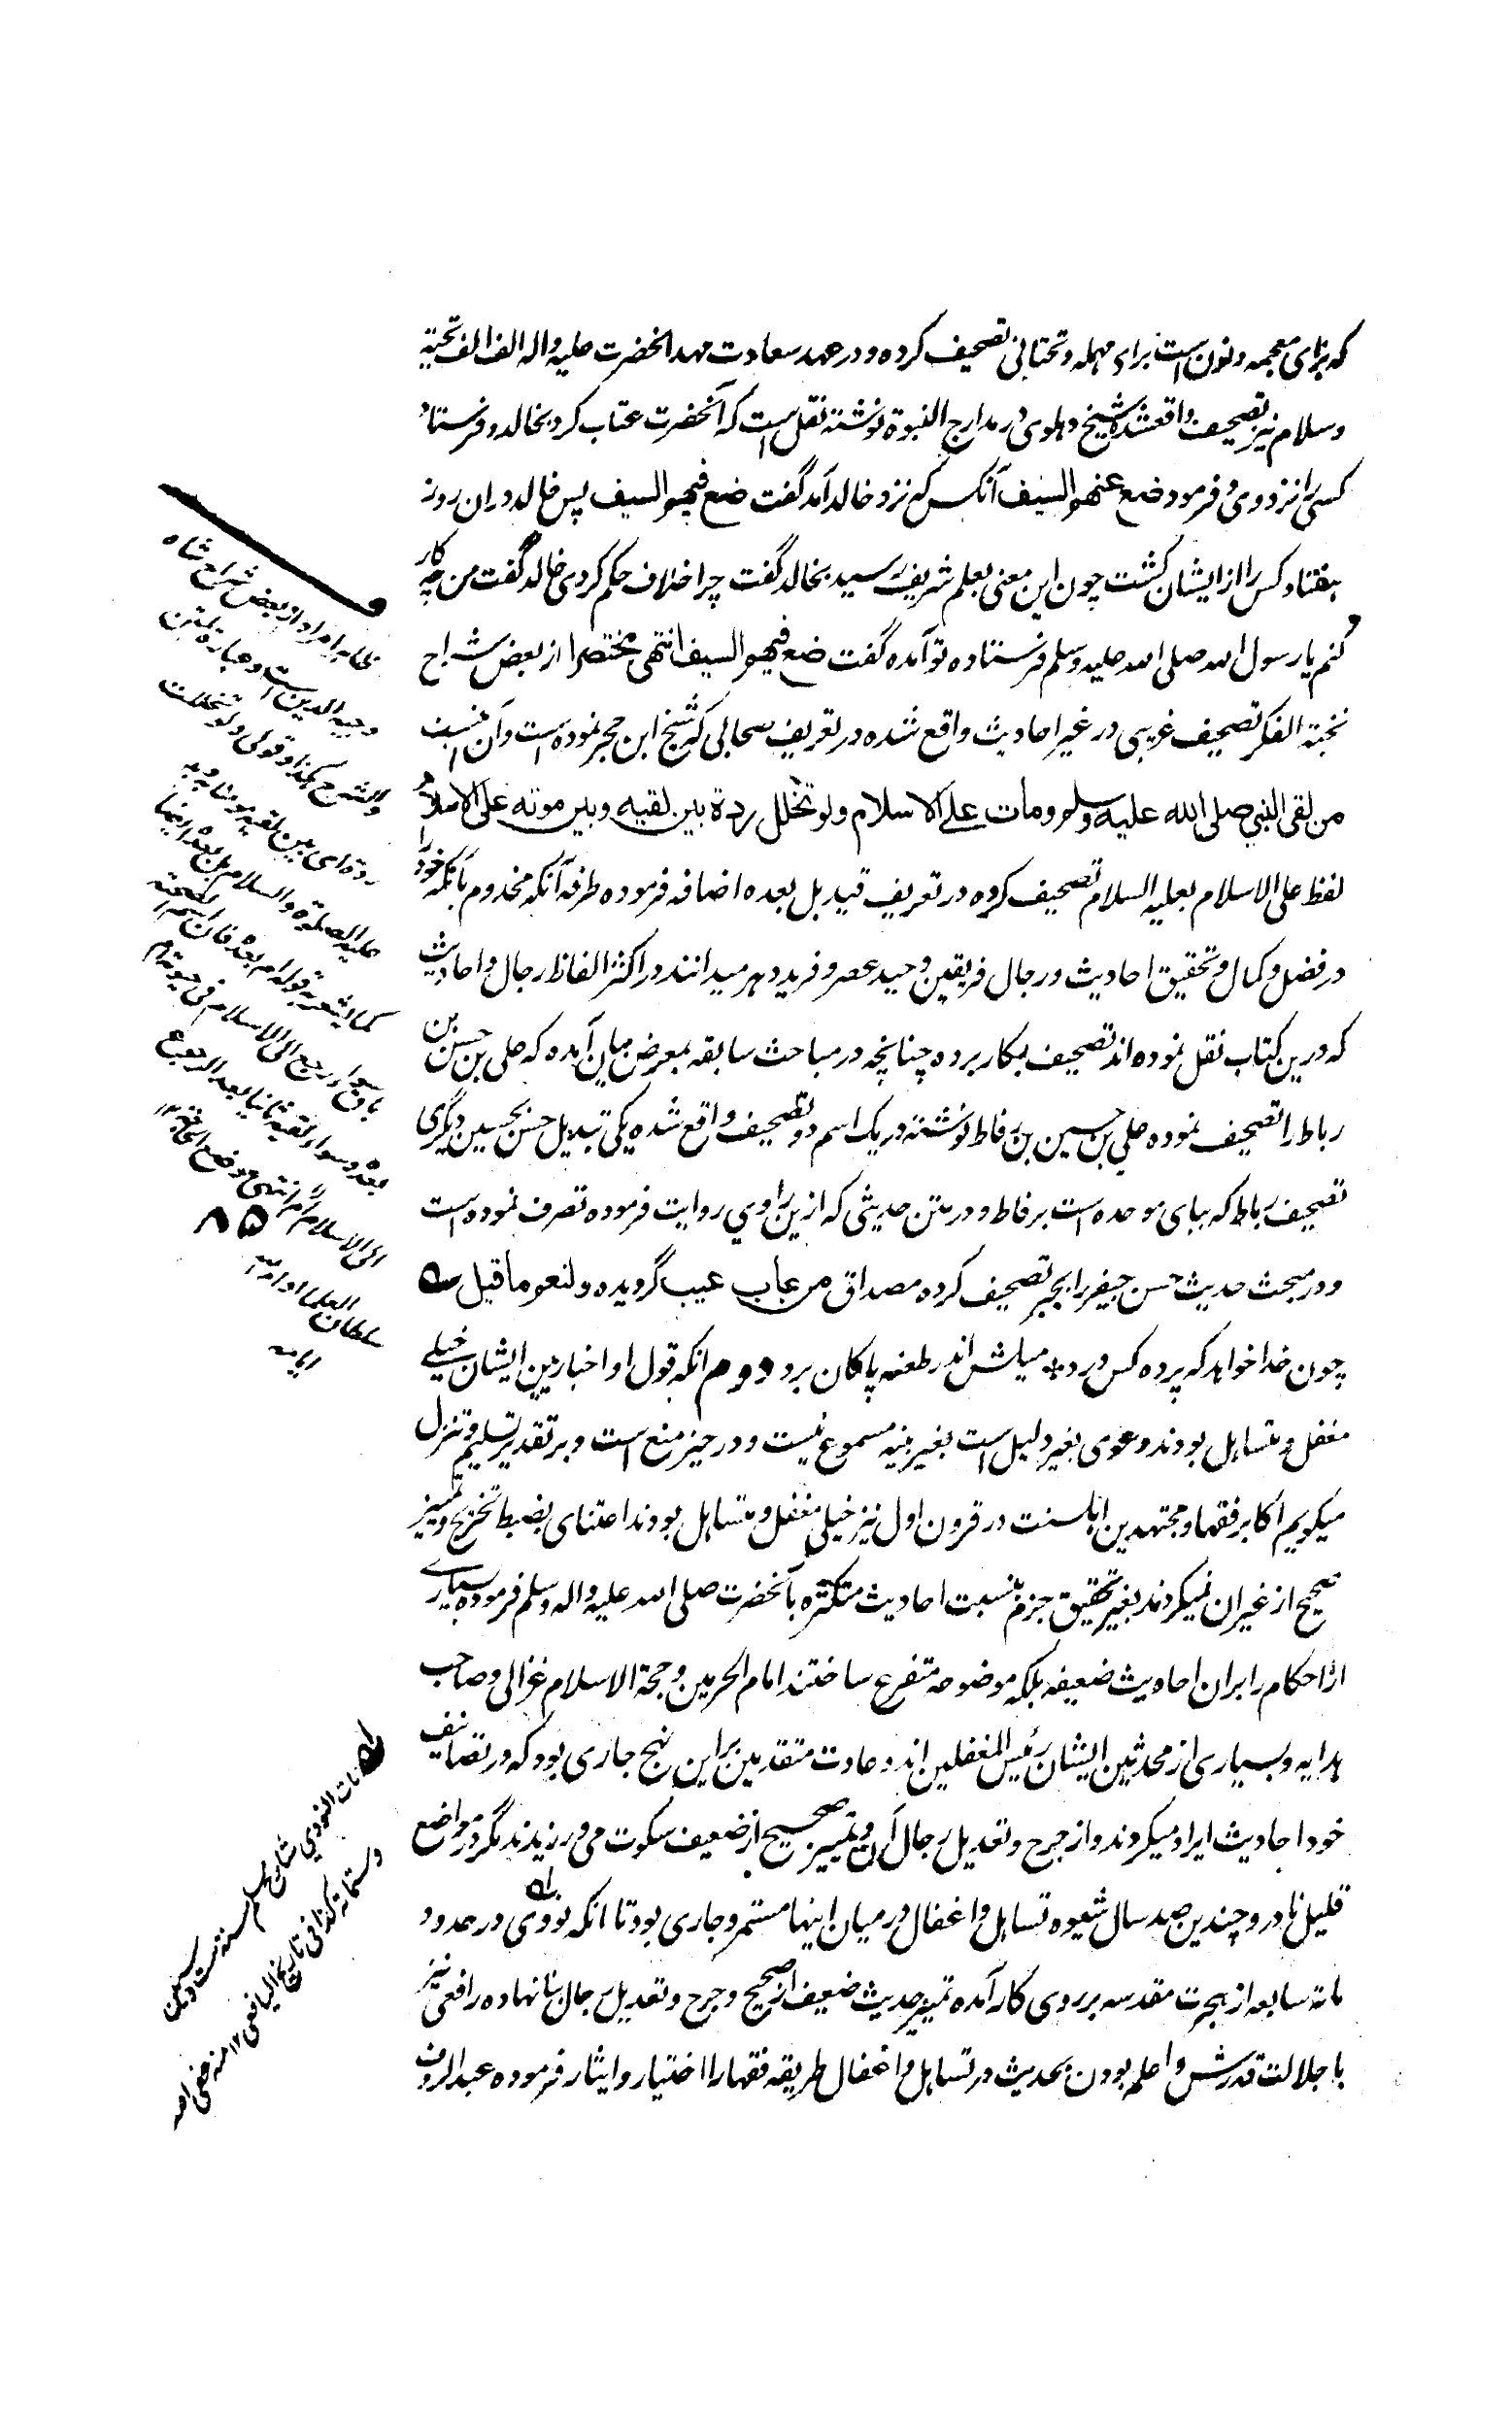 که بزای معجمه و نون است برای مهمله و تحتانی تصحیف کرده و در عهد سعادت مهد انحضرت علیه و اله الف الف تحیته
وسلام نیز تصحیف واقعشده شیخ دهلوی در مدارج النبوة نوشته نقل است که آنحضرت عتاب کرد بخالد و فرستاد
کسی را نزد وی و فرمود ضع عنهم السیف آنکس که نزد خالد آمد گفت ضع فیهم السیف پس خالد دران روز
هفتاد کس را از ایشان کشت چون این معنی بعلم شریف رسید بخالد گفت چرا خلاف حکم کردی خالد گفت من چه کار
کنم یا رسول الله صلی الله علیه وسلم فرستاده تو آمده گفت ضع فیهم السیف انتهی مختصرا از بعض شراح
نخبته الفکر تصحیف غریبی در غیر احادیث واقع شده در تعریف صحابی که شیخ ابن حجر نموده است و آن اینست
من لقی النبی صلی الله علیه وسلم ومات علی الاسلام ولو تخلل ردة بین لقیه وبین موته علی الاسلام
لفظ علی الاسلام بعلیه السلام تصحیف کرده در تعریف قید بل بعده اضافه فرموده طرفه آنکه مخدوم بآنکه خود را
در فضل و کمال و تحقیق احادیث و رجال فریقین وحید عصر و فرید دهر میدانند در اکثر الفاظ رجال و احادیث
که درین کتاب نقل نموده اند تصحیف بکار برده چنانچه در مباحث سابقه بمعرض بیان آمده که علی بن حسن بن
رباط را تصحیف نموده علی بن حسین بن رفاط نوشته در یک اسم دو تصحیف واقع شده یکی تبدیل حسن بحسین دیگری
تصحیف رباط که ببای موحده است برفاط و در متن حدیثی که ازین راوی روایت فرموده تصرف نموده است
و در مبحث حدیث حسن جیفر را بجبر تصحیف کرده مصداق من عاب عیب گردیده ولنعم ما قیل
چون خدا خواهد که پرده کس درد * میلش اندر طعنه پاکان برد دوم انکه قول او اخبارین ایشان خیلے
مغفل و متساهل بودند دعوی بغیر دلیل است بغیر بینه مسموع نیست و در حیز منع است و بر تقدیر تسلیم و تنزل
میکویم اکابر فقها و مجتهدین اهلسنت در قرون اول نیز خیلی مغفل و متساهل بودند اعتنای بضبط تخریج و تمییز
صحیح از غیر ان نمیکردند بغیر تحقیق جزم بنسبت احادیث متکثره بآنحضرت صلی الله علیه و اله وسلم فرموده بسیارے
از احکام را بران احادیث ضعیفه بلکه موضوعه متفرع ساختند امام الحرمین و حجة الاسلام غزالی و صاحب
هدایه و بسیاری از محدثین ایشان رئیس المغفلین اند و عادت متقدمین براین نهج جاری بود که در تصانیف
خود احادیث ایراد میکردند و از جرح و تعدیل رجال آن و تمییز صحیح از ضعیف سکوت می ورزیدند مگر در مواضع
قلیل نادر و چندین صد سال شیوه تساهل و اغفال در میان اینها مستمر و جاری بود تا انکه نووی در حدود
مائه سابعه از هجرت مقدسه برروی کار آمده تمییز حدیث ضعیف از صحیح و جرح و تعدیل رجال بنا نهاده رافعی نیز
با جلالت قدرش و اعلم بودن بحدیث در تساهل و اغفال طریقه فقها را اختیار و ایثار فرموده عبدالرؤف
ظاهرا مراد از بعض شراح شاه
وجیه الدین است و عبارة المتن
والشرح هکذا و قولی ولو تخللت
ردة ای بین لقیه مومنا به وبین
علیه الصلوة والسلام بل بعده ایضا
کما یشعر به قوله ام بعده فان اسم الصحبته
باق سواء رجع الی الاسلام فی حیوته ام
بعده وسواء لقیه ثانیا بعد الرجوع
الی الاسلام ام لا انتهی
۸۵
سلطان العلما ادام الله
ایامه
مات النووی شارح مسلم سنه ست و سبعین
وستمائة کذا فی تاریخ الیافعی ۱۲ منه عفی عنه